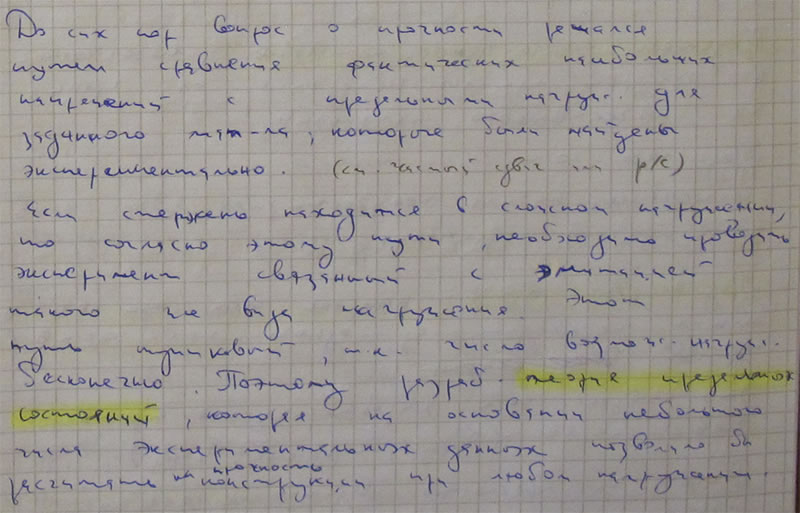 До сих пор вопрос о прочности решался
путем сравнения фактических наибольших
напряжений с предельными нагруж. для
заданного мат-ла, которые были найдены
экспериментально. (см. чистый сдвиг и р/с)
Если стержень находится в сложном нагружении,
то согласно этому пути, необходимо проводить
эксперимент связанный с имитацией
такого же вида нагружения. Этот
путь тупиковый, т.к. число возмож. нагруж.
бесконечно. Поэтому разраб. теория предельных
состояний, которая на основании небольшого
числа экспериментальных данных позволило бы
расчитать на прочность конструкции при любом нагружении.